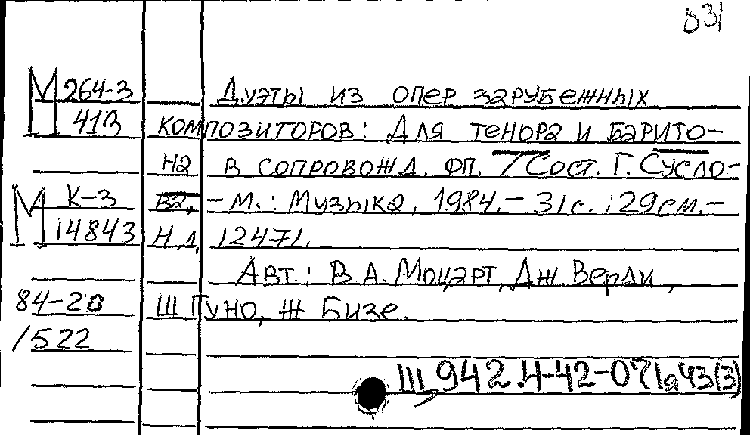 831
М 264-3 Дуэты из опер зарубежных
413 композиторов: Для тенора и барито-
на в сопровожд. фп. / Сост. Г. Сусло-
М К-3 ва, - М.: Музыка, 1984.- 31с.; 29см.-
14843 Н.д. 12471.
Авт.: В.А. Моцарт, Дж. Верди,
84-20 Ш Гуно, Ж Бизе.
/522
Щ 942.4-42-071а43(3)